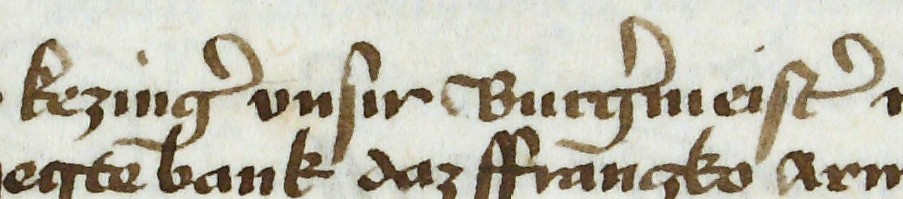 kezing' vnsir Burg'meist'
hegte bank daz ffrangko Arn